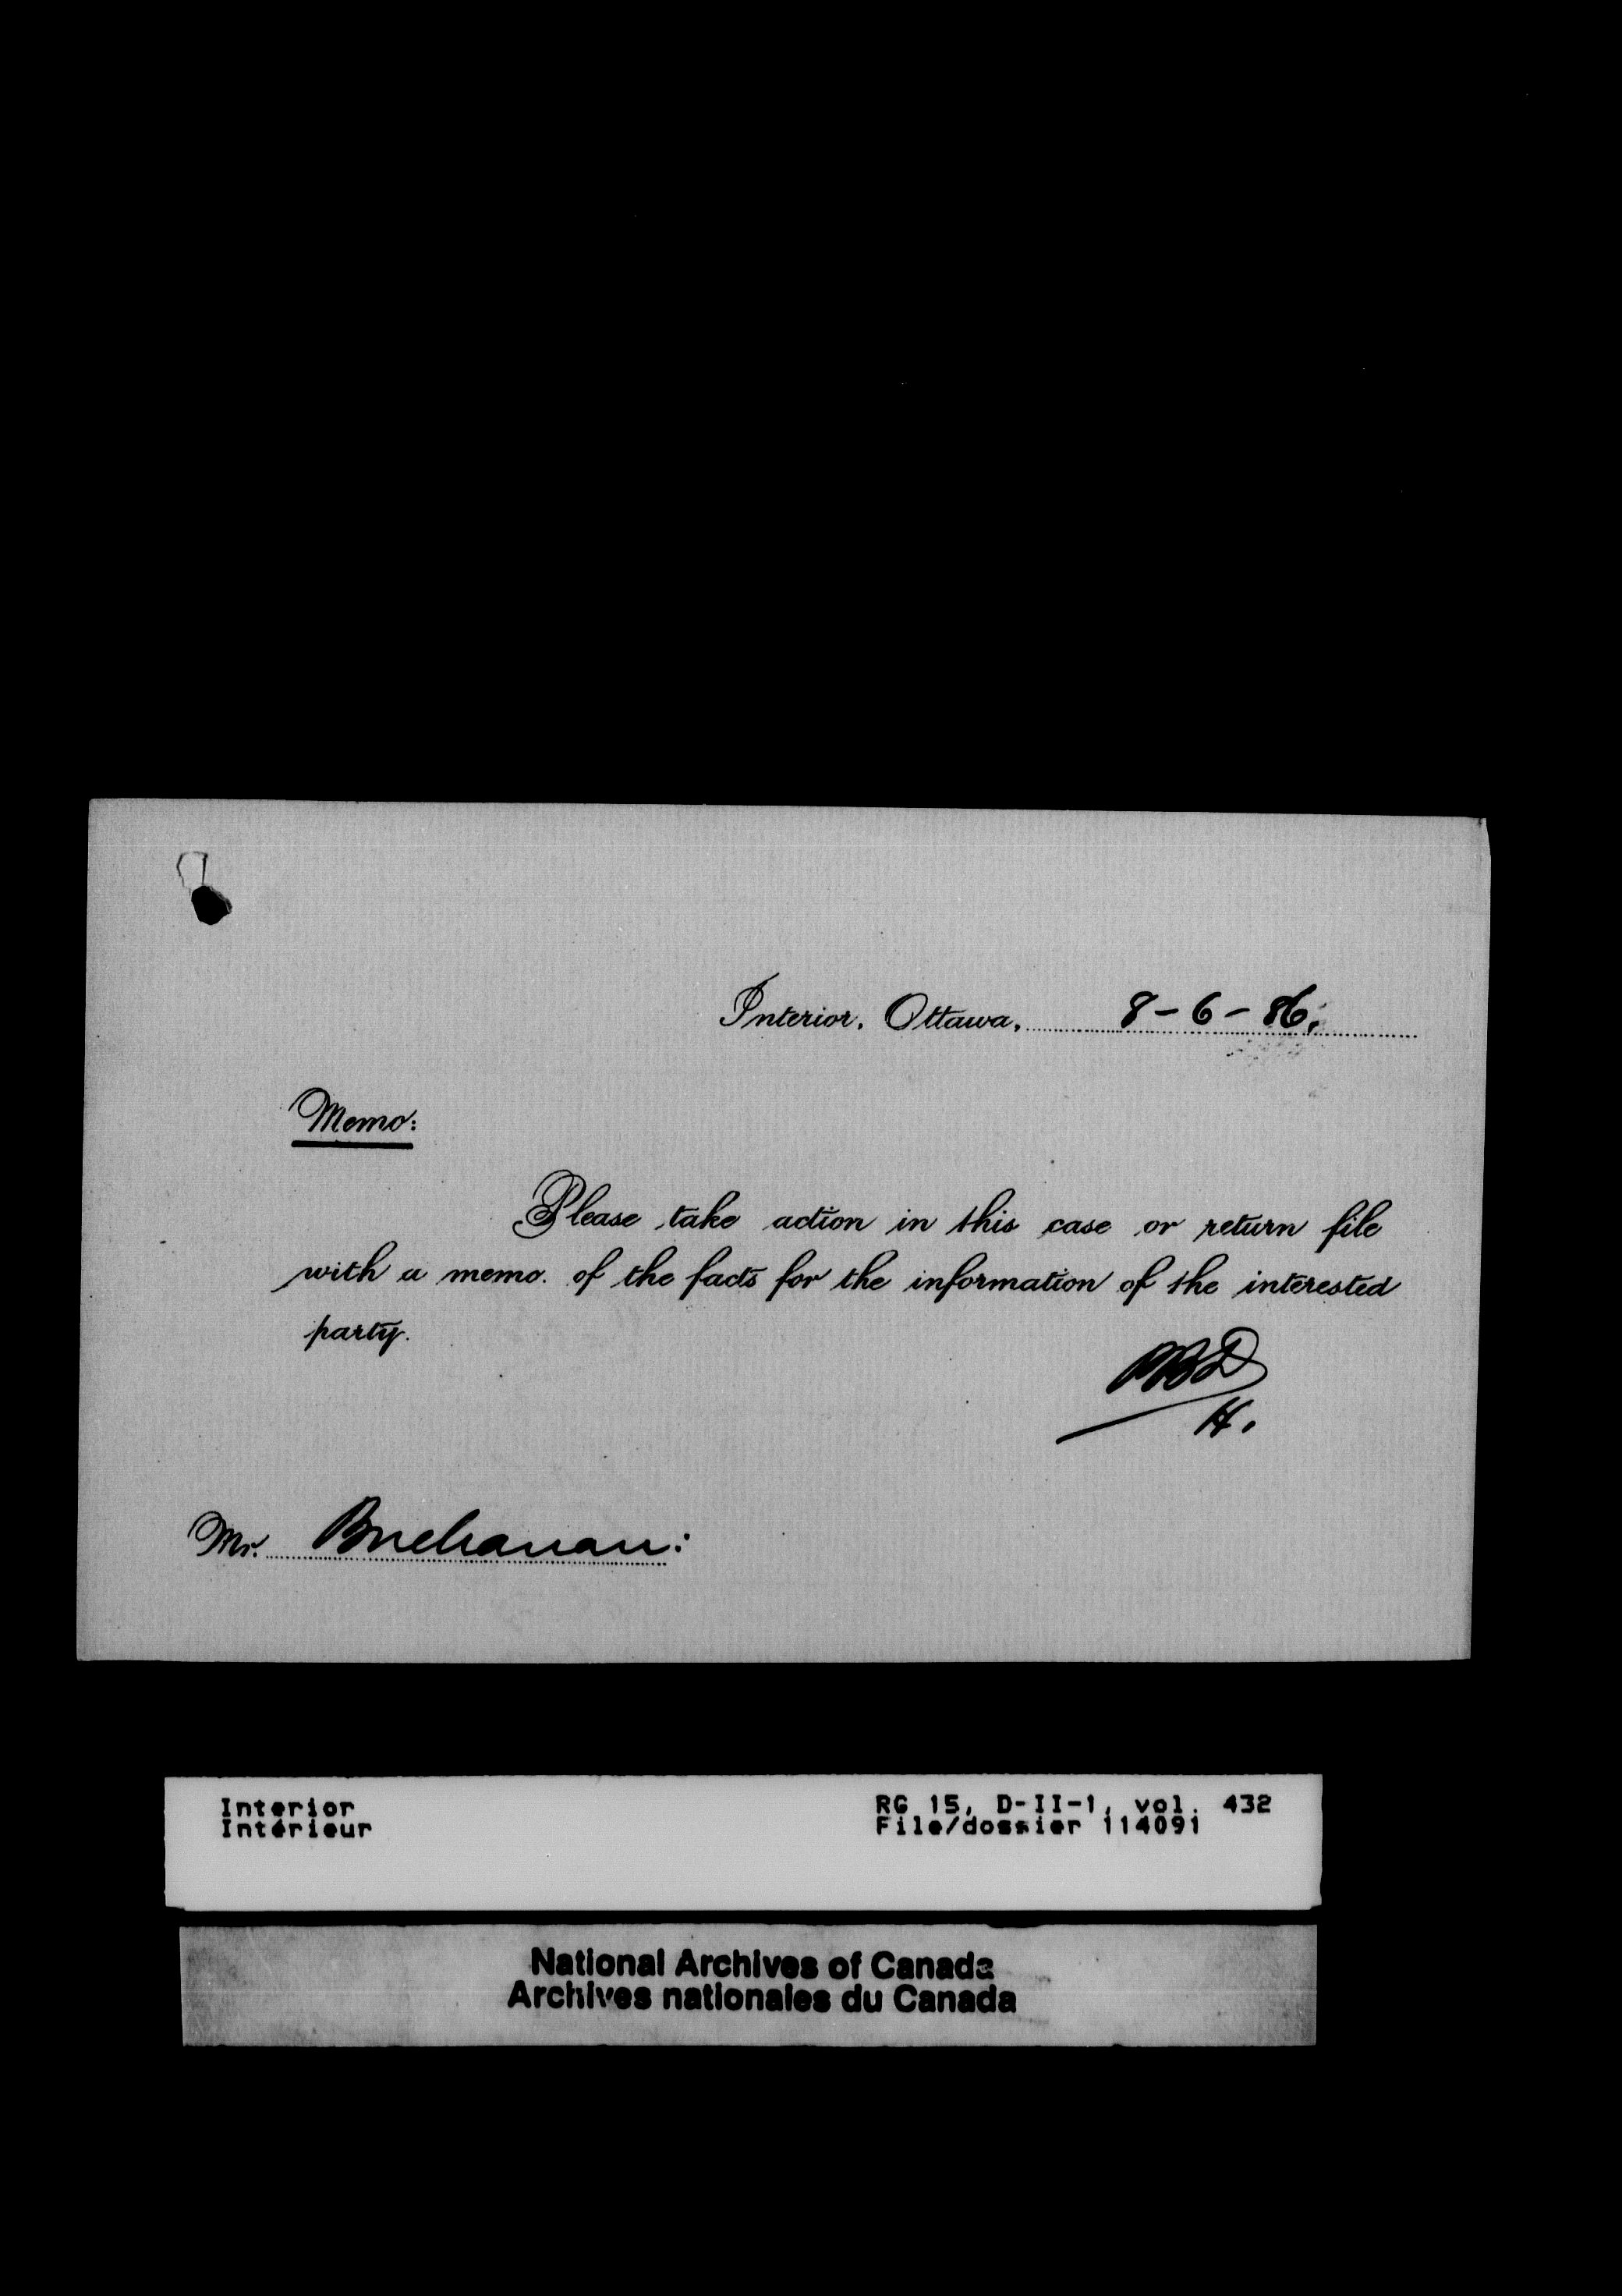 Interior, Ottawa, 8-6-86.
Memo:
Please take action in this case or return file
with a memo. of the facts for the information of the interested
party.
H.
Mr. Buchanan:
Interior
Intérieur
RG 15, D-II-1, vol. 432
File/dossier 114091
National Archives of Canada
Archives nationales du Canada